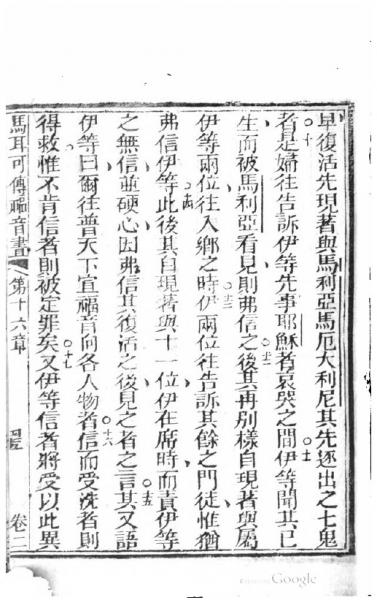 早復活先現著與馬利亞馬厄大利尼其先逐出之七鬼
者○十是婦往告訴伊等先事耶穌者哀哭之間○十一伊等聞其已
生而被馬利亞看見則弗信之○十二後其再別樣自現著與屬
伊等兩位往入鄉之時○十三伊兩位往告訴其餘之門徒惟猶
弗信伊等○十四此後其自現著與十一位伊在席時而責伊等
之無信並硬心因弗信其復活之後見之者之言○十五其又語
伊等曰爾往普天下宣福音向各人物者○十六信而受洗者則
得救惟不肯信者則被定罪矣○十七又伊等信者將受以此異
馬耳可傳福音書 第十六章 卷二
Google